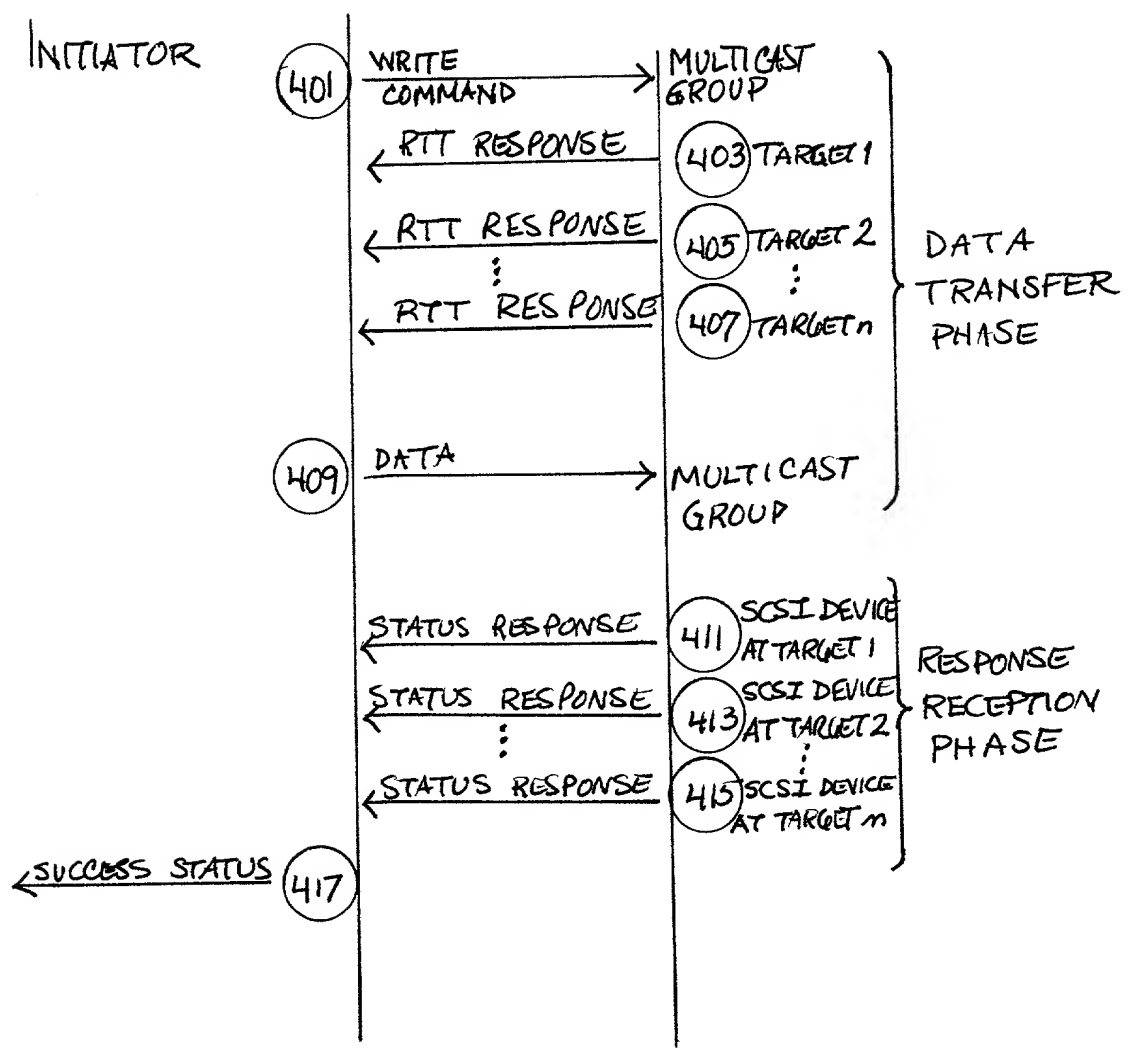 INITIATOR
401
WRITE
COMMAND
MULTICAST
GROUP
RTT RESPONSE
403 TARGET 1
RTT RESPONSE
405 TARGET 2
RTT RESPONSE
407 TARGET n
DATA
TRANSFER
PHASE
409
DATA
MULTICAST
GROUP
STATUS RESPONSE
411
SCSI DEVICE
AT TARGET 1
STATUS RESPONSE
413
SCSI DEVICE
AT TARGET 2
STATUS RESPONSE
415
SCSI DEVICE
AT TARGET n
RESPONSE
RECEPTION
PHASE
SUCCESS STATUS
417